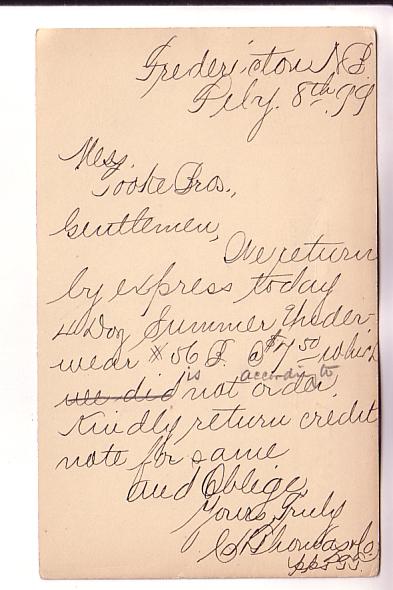 Fredericton N.B.
Feby. 8th. 99
Mess.
Tooke Bros.,
Gentlemen,
We return
by express today
4 Doz Summer Under
wear # 56 @ $7 50 which
is accordg to
we did not order.
Kindly return credit
note for same
and Oblige,
Yours Truly
C Thomas & Co